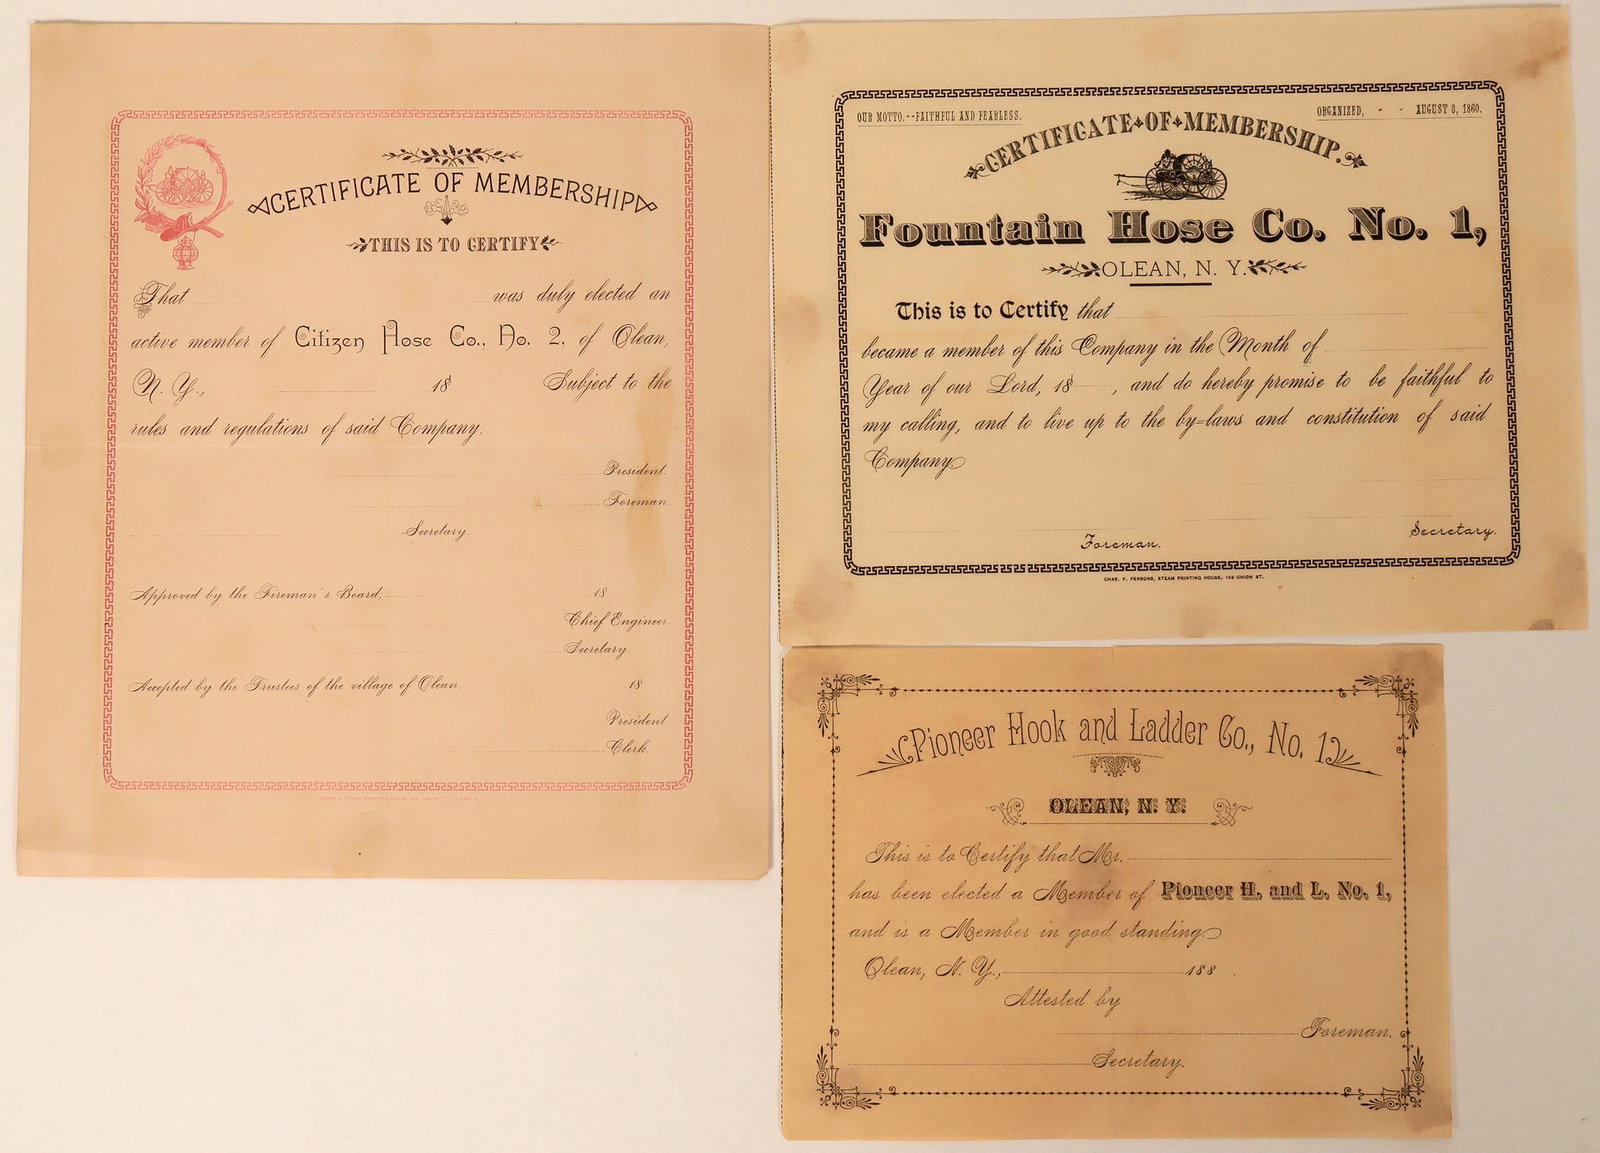 CERTIFICATE OF MEMBERSHIP
THIS IS TO CERTIFY
That was duly elected an
active member of Citizen Hose Co., No. 2, of Olean,
N. Y., 18 Subject to the
rules and regulations of said Company.
President.
Foreman
Secretary.
Approved by the Fireman's Board, 18
Chief Engineer.
Secretary.
Accepted by the Trustees of the village of Olean, 18
President.
Clerk.
HERALD STEAM PRINTING HOUSE 103 UNION ST. OLEAN, N. Y.
OUR MOTTO.--FAITHFUL AND FEARLESS. ORGANIZED, - - AUGUST 8, 1860.
CERTIFICATE OF MEMBERSHIP.
Fountain Hose Co. No. 1,
OLEAN, N. Y.
This is to Certify that
became a member of this Company in the Month of
Year of our Lord, 18 , and do hereby promise to be faithful to
my calling, and to live up to the by=laws and constitution of said
Company.
Secretary.
Foreman.
CHAS. F. PERSONS, STEAM PRINTING HOUSE, 103 UNION ST.
Pioneer Hook and Ladder Co., No. 1
OLEAN, N. Y.
This is to Certify that Mr.
has been elected a Member of Pioneer H. and L. No. 1,
and is a Member in good standing.
Olean, N. Y., 188 .
Attested by
Foreman.
Secretary.